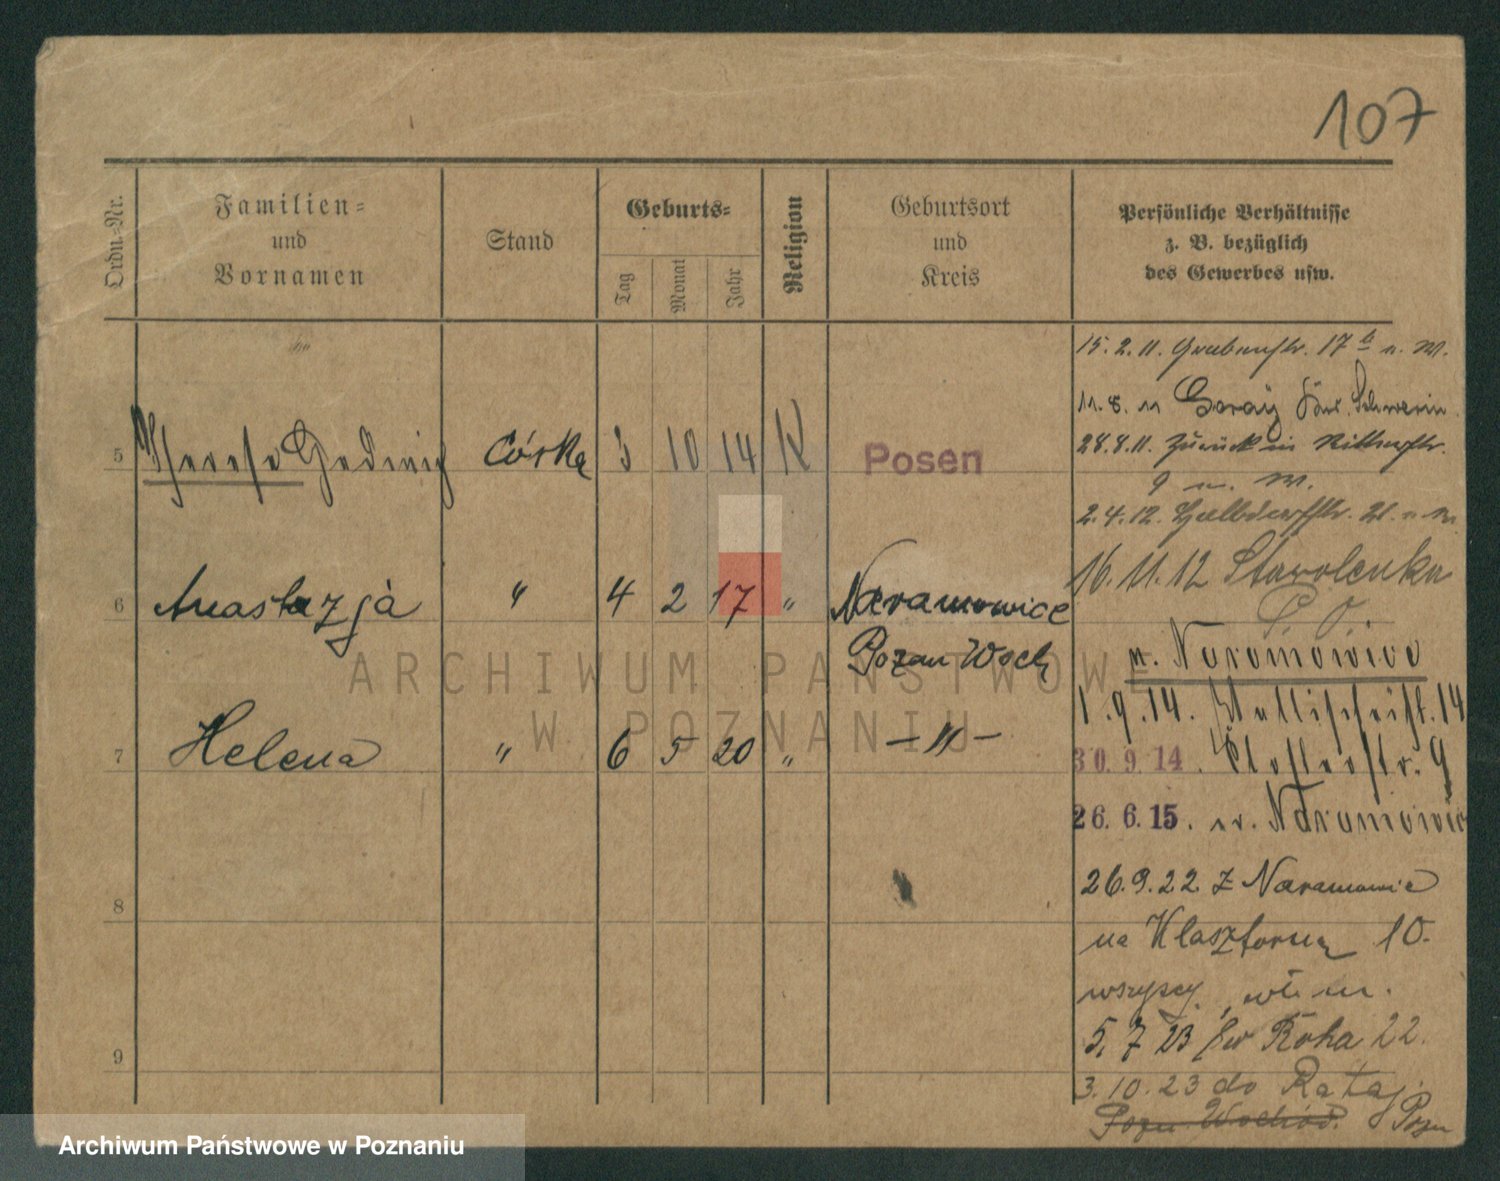 107
Ordn.-Nr.
Familien-
und
Vornamen
Stand
Geburts-
Tag
Monat
Jahr
Religion
Geburtsort
und
Kreis
Persönliche Verhältnisse
z. B. bezüglich
des Gewerbes usw.
15. 2. 11. Grabenstr. 17 b n. W.
11. 8. 11 Schwerin
28. 8. 11. Zurück in Ritterstr.
9 W.
2. 4. 12. Halbdorfstr.
16. 11. 12 Starolenka
P. O.
n. Naramowice
1. 9. 14. 14
30. 9. 14. Klosterstr. 9
26. 6. 15. n. Naramowice
26. 9. 22. z Naramowic
na Klasztorną 10.
wszyscy
5. 7 23 św Rocha 22.
3. 10. 23 do Rataj
Pozn. Wschód. Pozn
5 Therese Hedwig Córka 3 10 14 K Posen
6 Anastazja " 4 2 17 " Naramowice
Pozań Wsch
7 Helena " 6 5 20 " — " —
8
9
ARCHIWUM PAŃSTWOWE
W POZNANIU
Archiwum Państwowe w Poznaniu